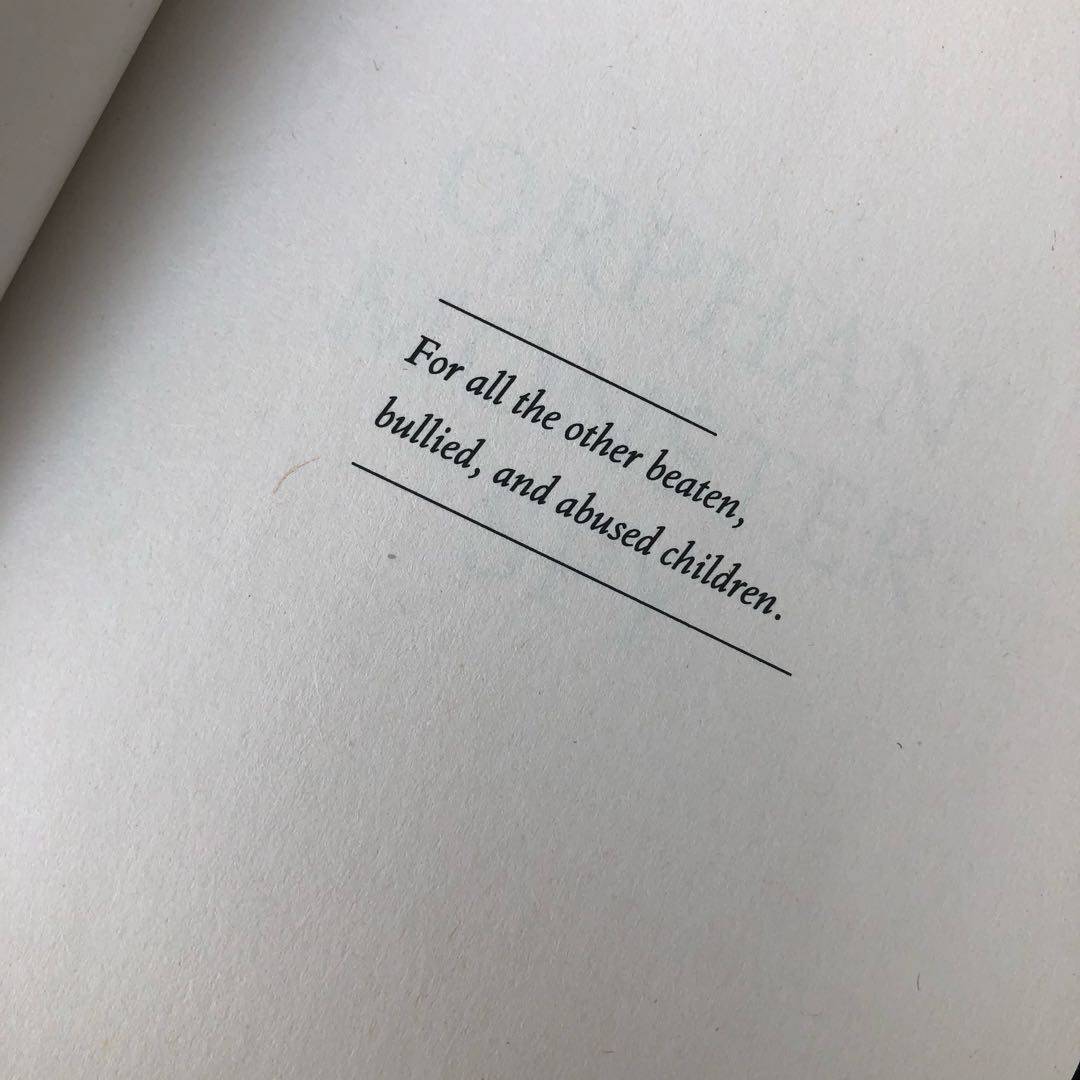 For all the other beaten,
bullied, and abused children.